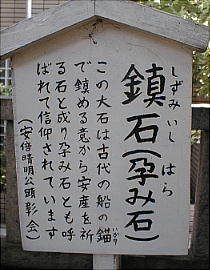 しずみいし はら
鎮石(孕み石)
この大石は古代の船の錨
いかり
で鎮める意から安産を祈
る石と成り孕み石とも呼
ばれて信仰されています
(安倍晴明公顕彰会)